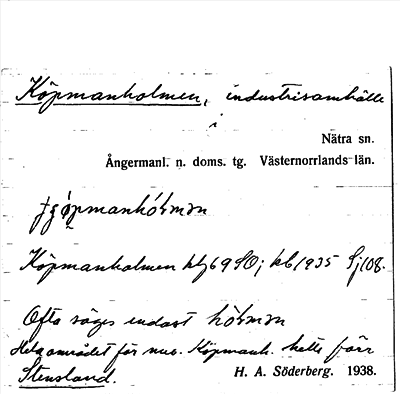 Köpmanholmen, industrisamhälle
i
Nätra sn.
Ångermanl. n. doms. tg. Västernorrlands län.
Köpmanholmen 69 SO; kb 1935 Sj 108.
Ofta säges endast
Hela området för nuv. Köpmanh. hette förr
Stensland.
H. A. Söderberg. 1938.